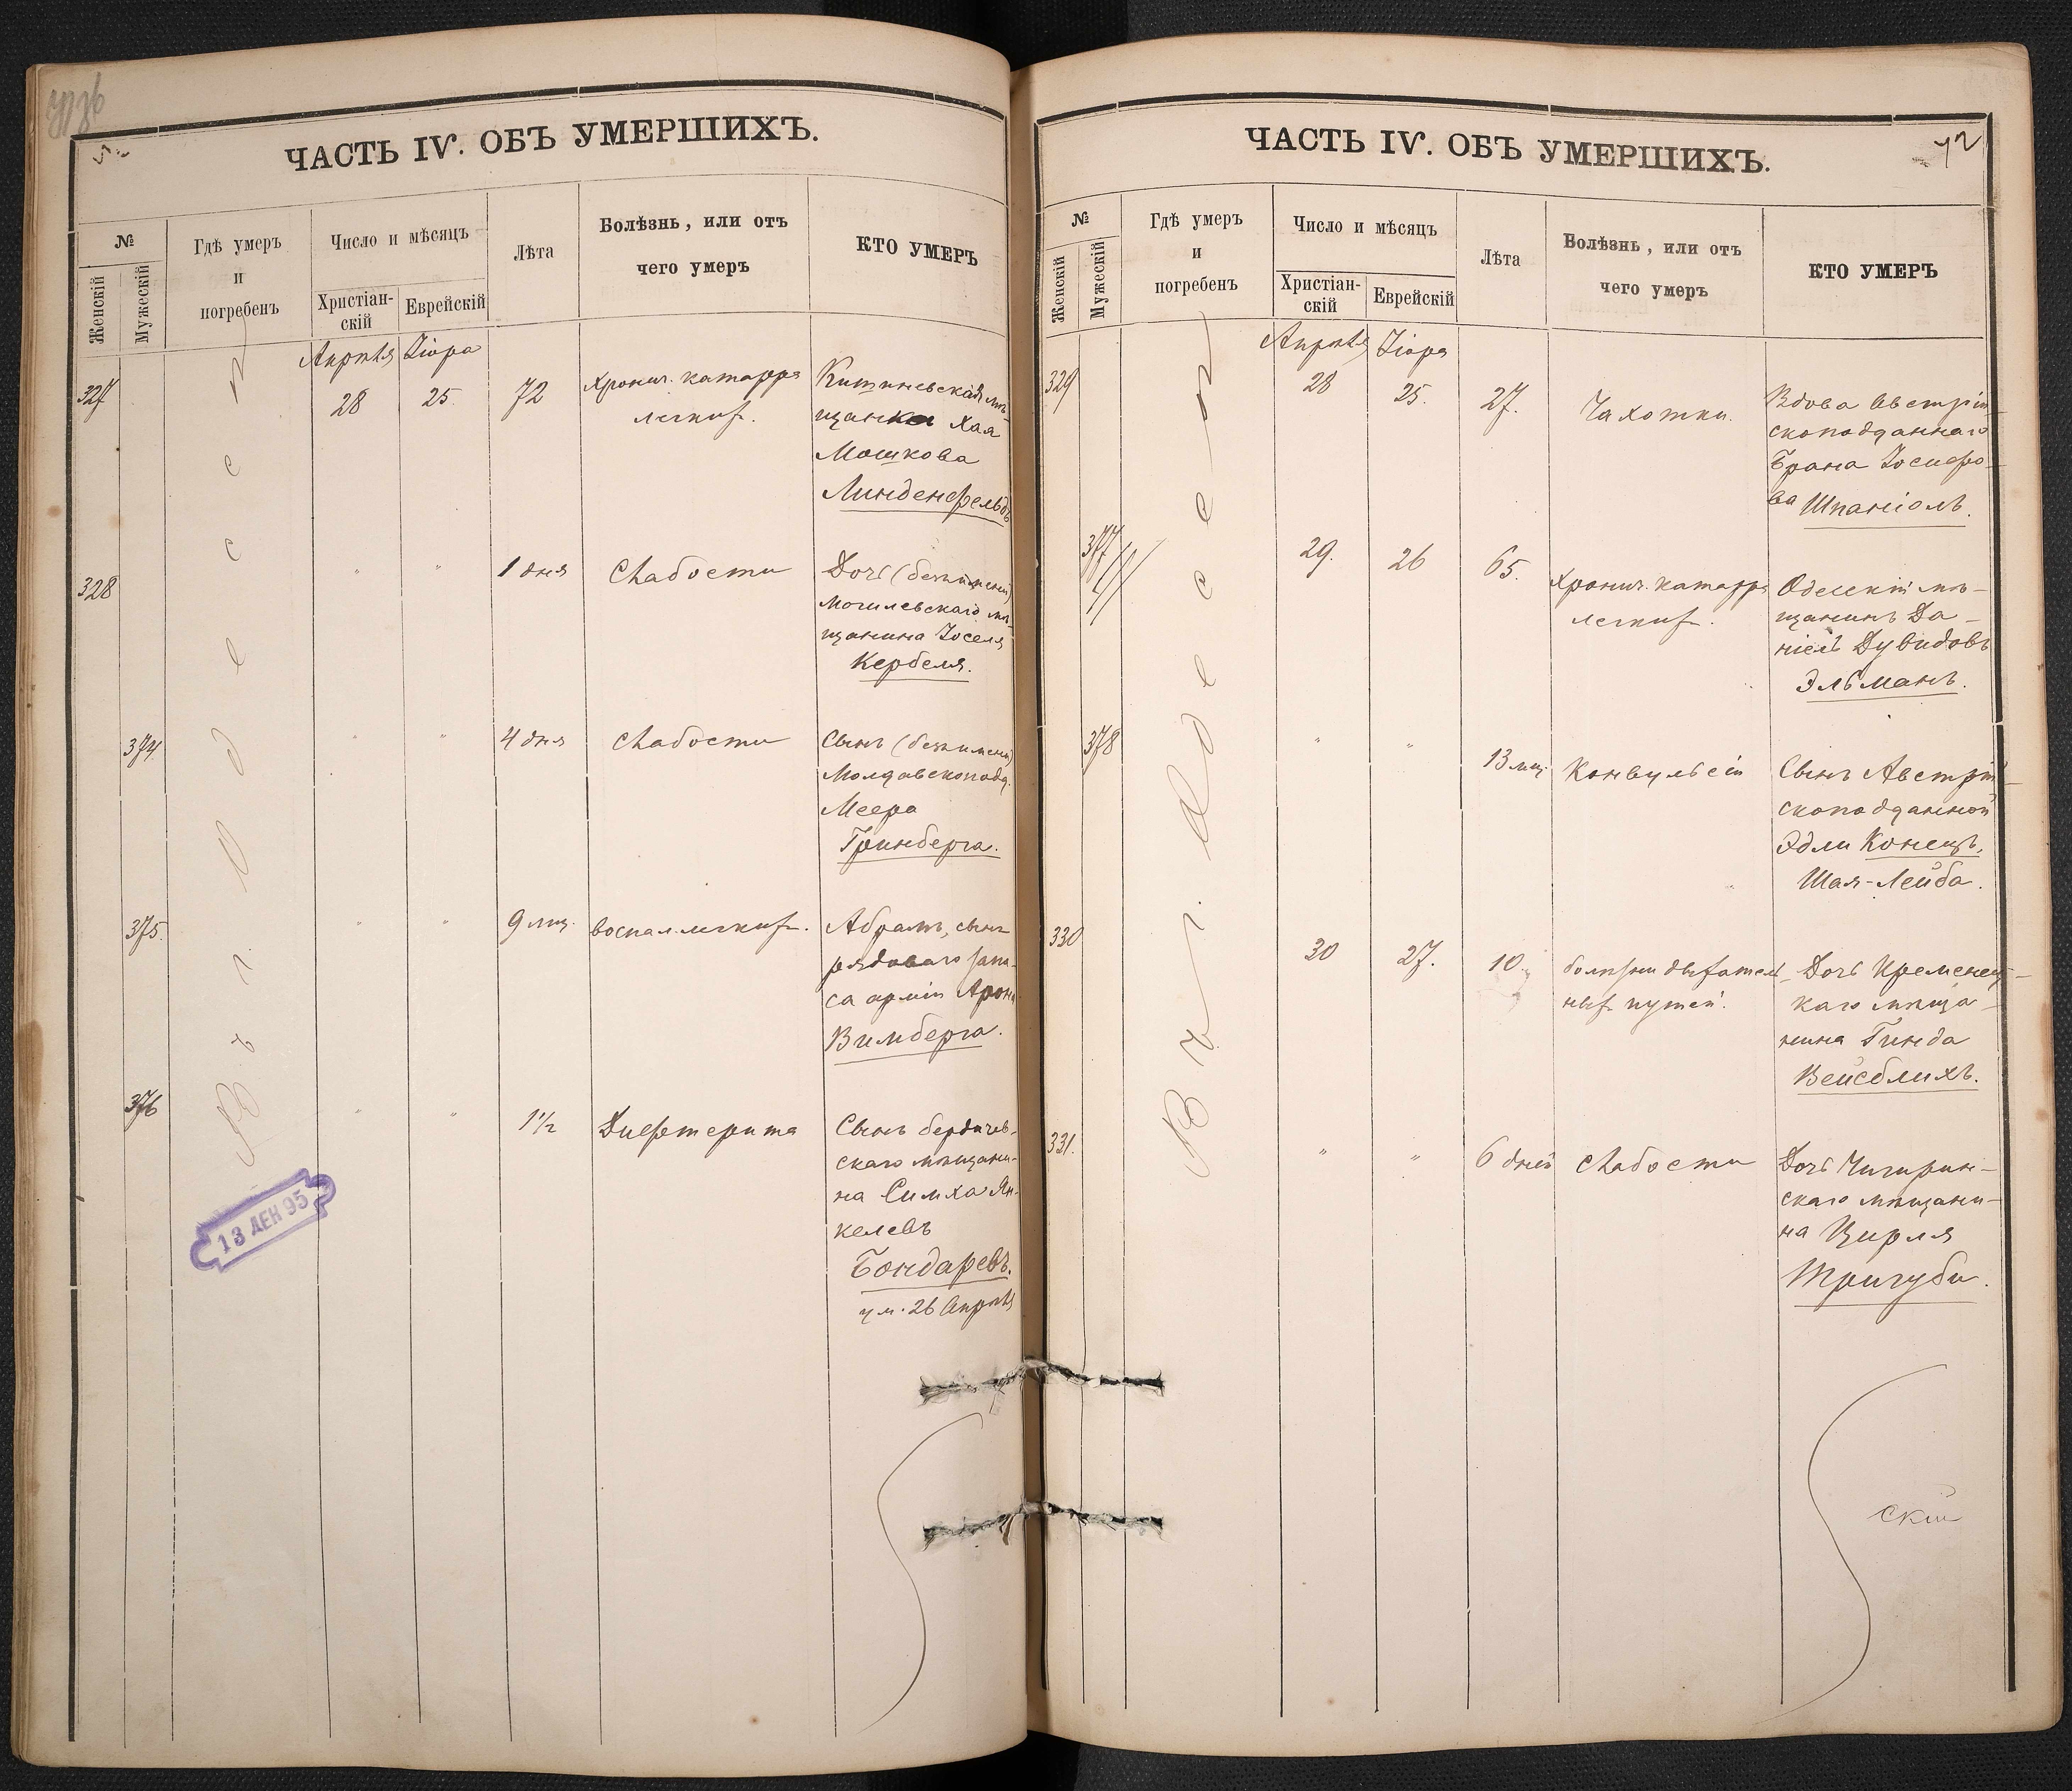 ЧАСТЬ IV. ОБЪ УМЕРШИХЪ.
№
Женскій
Мужескій
Гдѣ умеръ
и
погребенъ
Число и мѣсяцъ
Христіан-
скій
Еврейскій
Лѣта
Болѣзнь, или отъ
чего умеръ
КТО УМЕРЪ
Въ г. Одессѣ
Апрѣля Ііора
327
28
25.
72
Хронич. катарра
легкихъ.
Кишиневская мѣ-
щанка Хая
Мошкова
Линденфельдъ
328
"
"
1 дня
Слабости
Дочь (безъимени)
Могилевскаго мѣ-
щанина Іоселя
Кербеля.
374
"
"
4 дня
Слабости
Сынъ (безъимени)
Молдавскоподд.
Меера
Гринберга.
375.
"
"
9 мц.
воспал. легкихъ.
Абрамъ, сынъ
рядоваго запа-
са арміи Арона
Вимберга.
376
"
"
1½
Дифтерита
Сынъ бердичев-
скаго мѣщани-
на Симха Ян-
келевъ
Бондаревъ.
ум. 26 Апрѣля
13 ДЕК 95
ЧАСТЬ IV. ОБЪ УМЕРШИХЪ.
42
№
Женскій
Мужескій
Гдѣ умеръ
и
погребенъ
Число и мѣсяцъ
Христіан-
скій
Еврейскій
Лѣта
Болѣзнь, или отъ
чего умеръ
КТО УМЕРЪ
Въ г. Одессѣ
Апрѣля Ііора
329
28
25.
27.
Чахотки.
Вдова Австрій-
скоподданнаго
Брана Іосифо-
ва Шпаніолъ.
377
29.
26
65.
Хронич. катарра
легкихъ.
Одесскій мѣ-
щанинъ Да-
ніелъ Дувидовъ
Эльманъ.
378
"
"
13 мц.
Конвульсіи
Сынъ Австрій-
скоподданной
Эдли Конецъ,
Шая-Лейба.
330
30
27.
10.
болѣзни дыхатель-
ныхъ путей.
Дочь Кременец-
каго мѣща-
нина Гинда
Вейсблихъ.
331.
"
"
6 дней
Слабости
Дочь Чигирин-
скаго мѣщани-
на Цирля
Тригуби.
скій